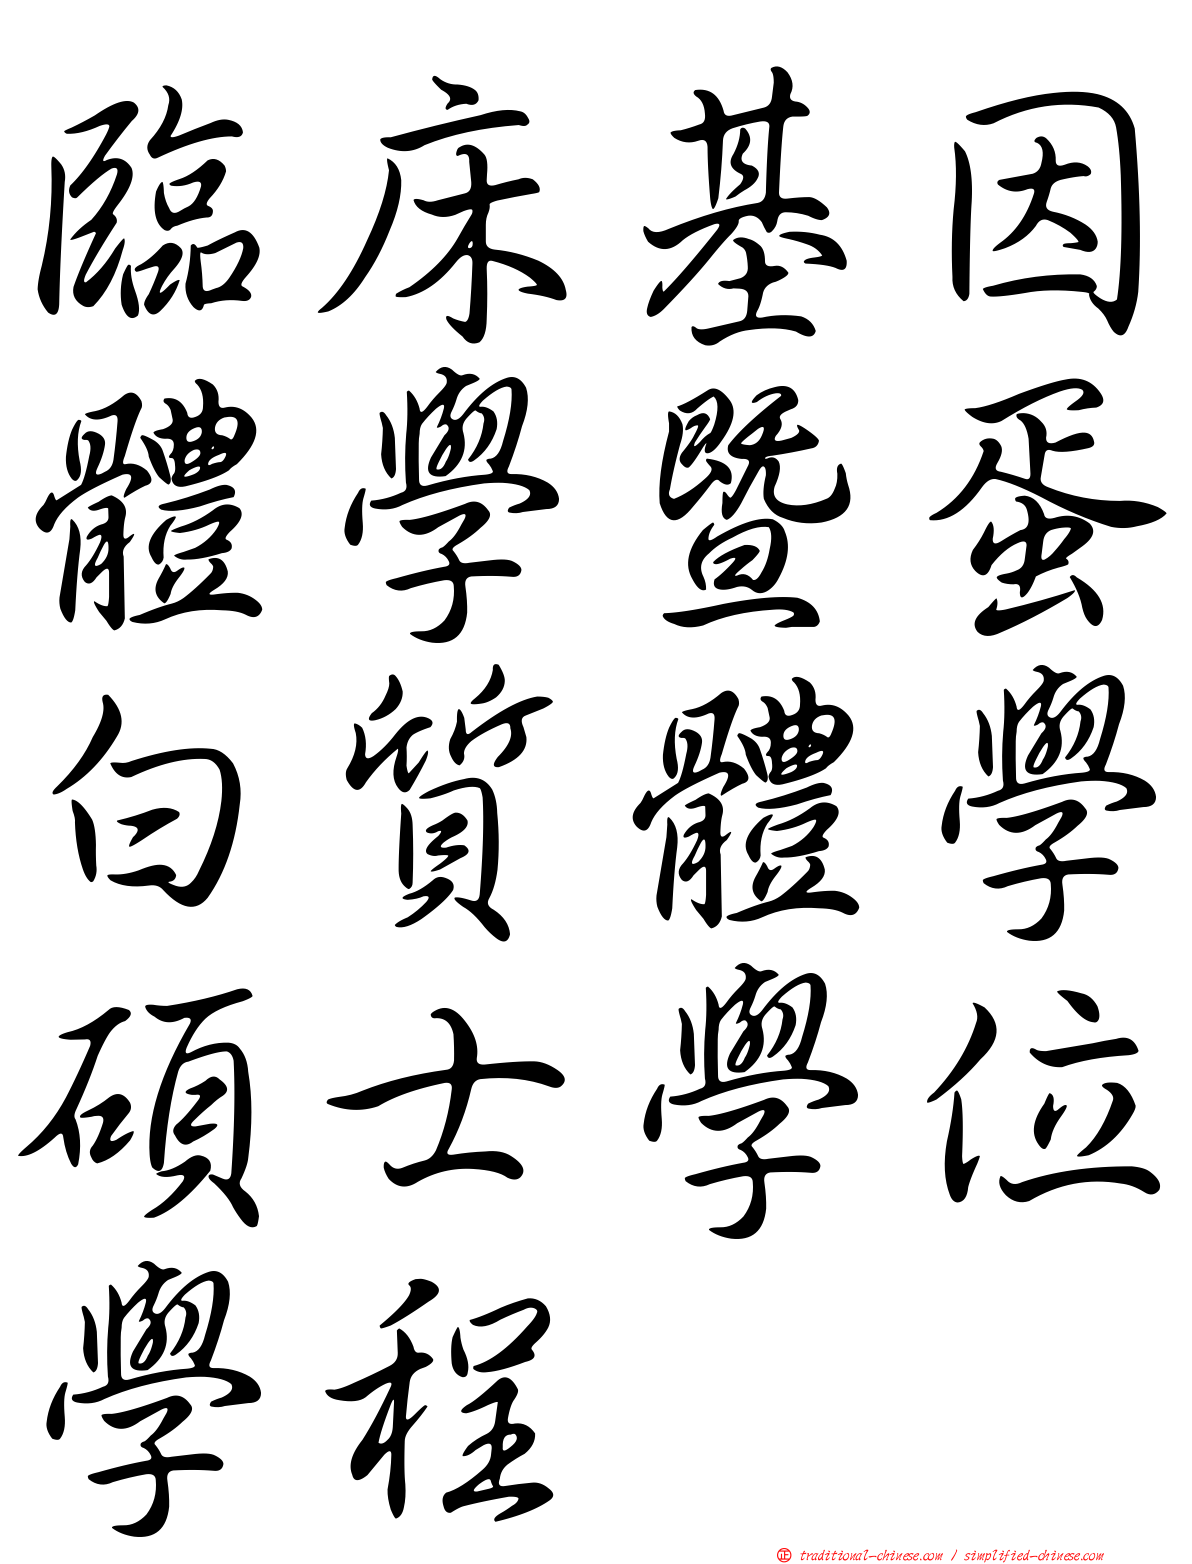 臨床基因
體學暨蛋
白質體學
碩士學位
學程
㊣ traditional-chinese.com / simplified-chinese.com